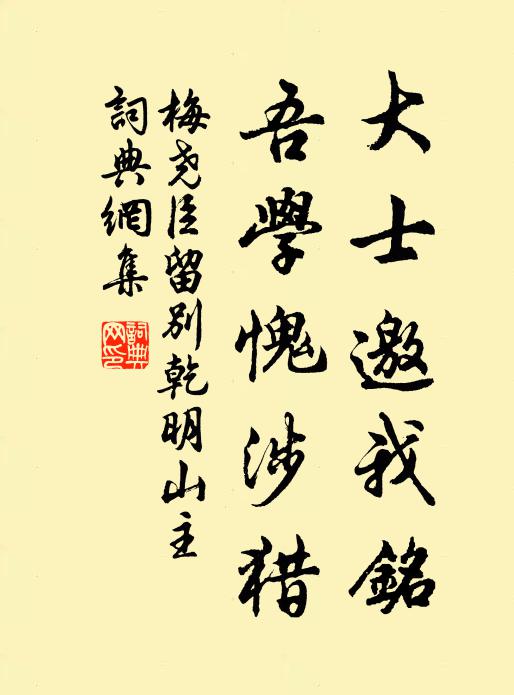 大士邀我銘
吾學愧涉猎
梅尧臣留别乾明山主
詞典網集
詞典網印